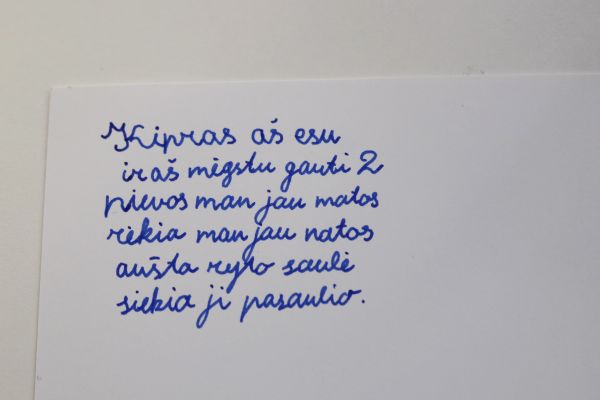 Kipras aš esu
ir aš mėgstu gauti 2
pievos man jau matos
rėkia man jau natos
aušta ryto saulė
siekia ji pasaulio.